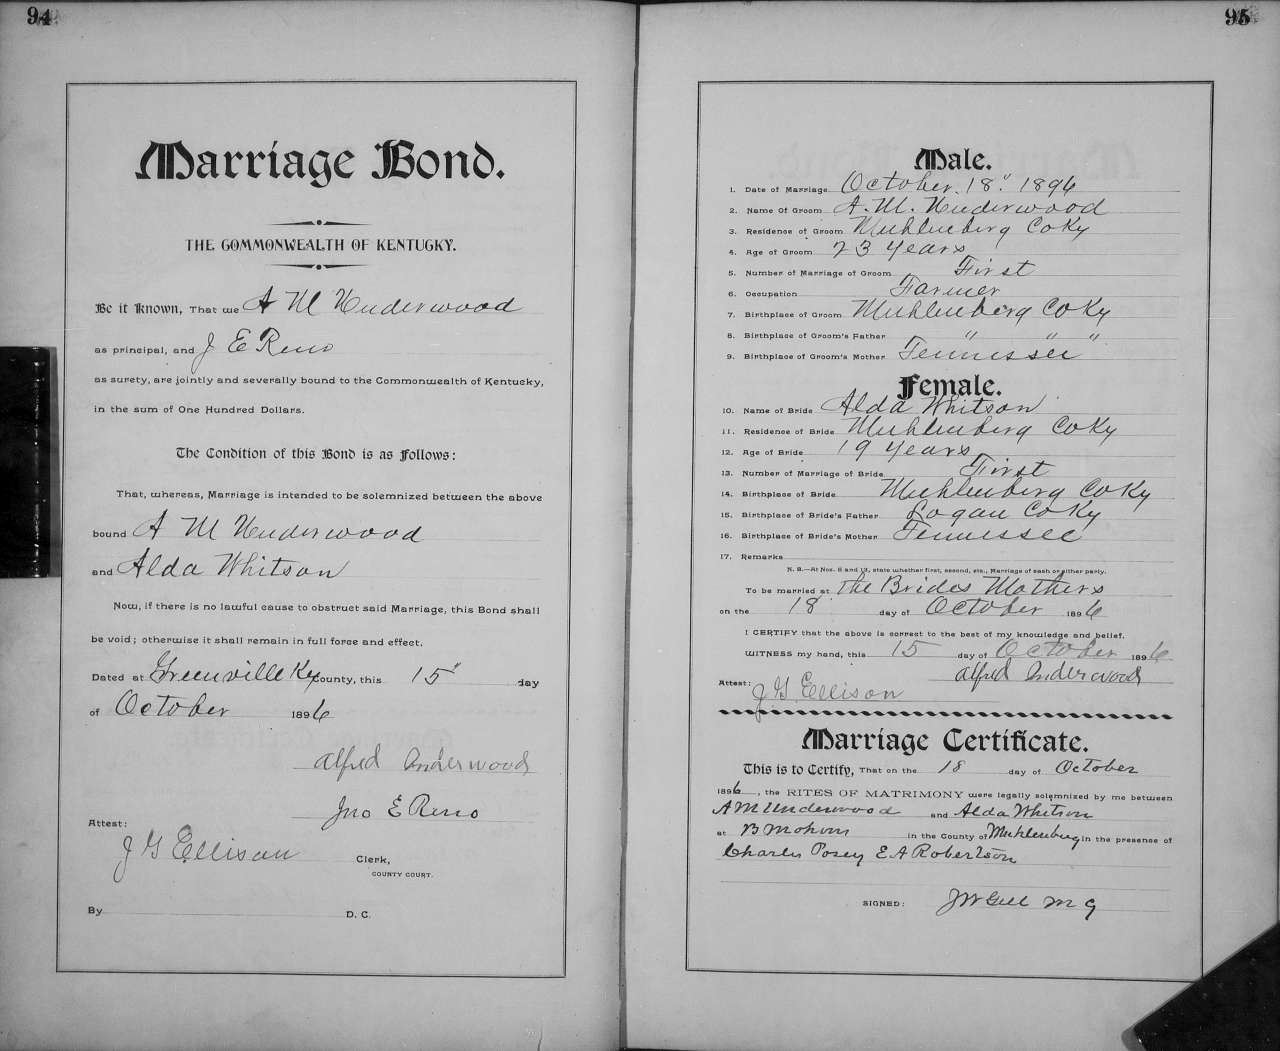 94
Marriage Bond.
THE COMMONWEALTH OF KENTUCKY.
Be it Known, That we A M Underwood
as principal, and J E Reno
as surety, are jointly and severally bound to the Commonwealth of Kentucky,
in the sum of One Hundred Dollars.
The Condition of this Bond is as Follows:
That, whereas, Marriage is intended to be solemnized between the above
bound A M Underwood
and Alda Whitson
Now, if there is no lawful cause to obstruct said Marriage, this Bond shall
be void; otherwise it shall remain in full force and effect.
Dated at Greenville Ky County, this 15" day
of October 1896
Alfred Underwood
Jno E Reno
Attest:
J G Ellison
Clerk,
COUNTY COURT.
By D. C.
95
Male.
1. Date of Marriage October 18." 1896
2. Name Of Groom A. M. Underwood
3. Residence of Groom Muhlenberg Co Ky
4. Age of Groom 23 Years
5. Number of Marriage of Groom First
6. Occupation Farmer
7. Birthplace of Groom Muhlenberg Co Ky
8. Birthplace of Groom's Father " " "
9. Birthplace of Groom's Mother Tennessee
Female.
10. Name of Bride Alda Whitson
11. Residence of Bride Muhlenberg Co Ky
12. Age of Bride 19 Years
13. Number of Marriage of Bride First
14. Birthplace of Bride Muhlenberg Co Ky
15. Birthplace of Bride's Father Logan Co Ky
16. Birthplace of Bride's Mother Tennessee
17. Remarks
N. B.—At Nos. 5 and 13, state whether first, second, etc., Marriage of each or either party.
To be married at the Brides Mothers
on the 18 day of October 1896
I CERTIFY that the above is correct to the best of my knowledge and belief.
WITNESS my hand, this 15 day of October 1896
Alfred Underwood
Attest: J G Ellison
Marriage Certificate.
This is to Certify, That on the 18 day of October
1896, the RITES OF MATRIMONY were legally solemnized by me between
A M Underwood and Alda Whitson
at B Mothers in the County of Muhlenberg in the presence of
Charles Posey E A Robertson
SIGNED: J W Gill M G